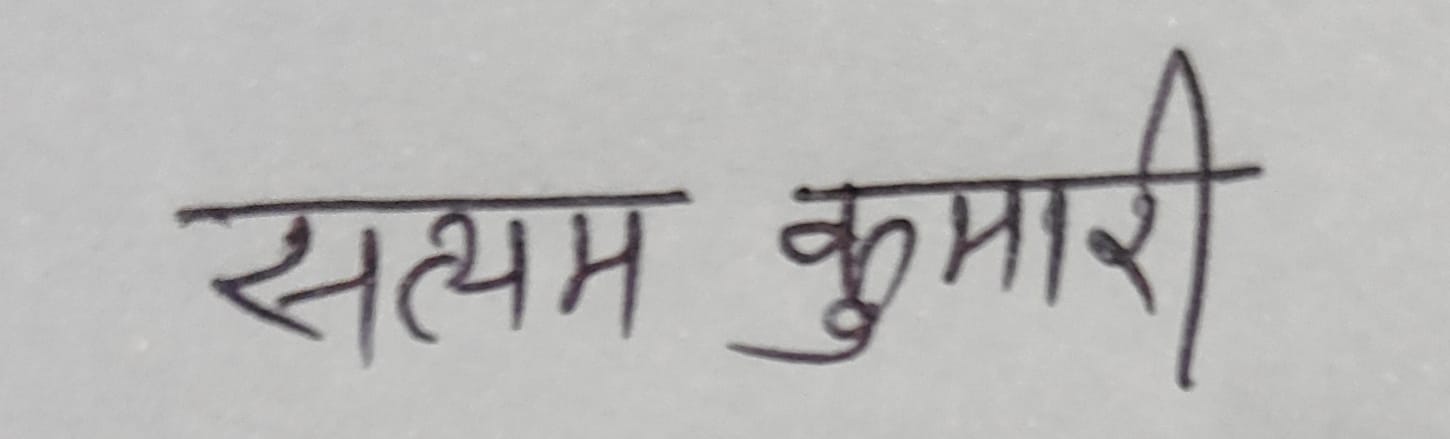 सत्यम कुमारी